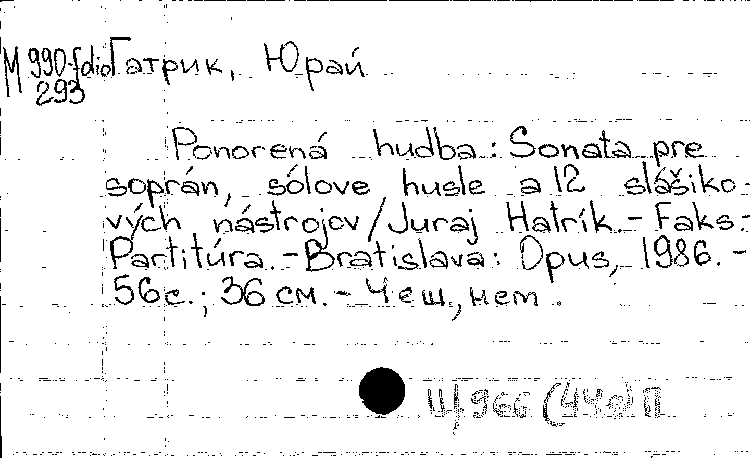 М 990-fdio Гатрик, Юрай
293
Ponorená hudba: Sonata pre
soprán, sólove husle a 12 slášiko-
vých nástrojov/Juraj Hatrík.- Faks.-
Partitúra.-Bratislava: Opus, 1986.-
56с.; 36 см.- Чеш., нем.
Ц 966 (44е) П